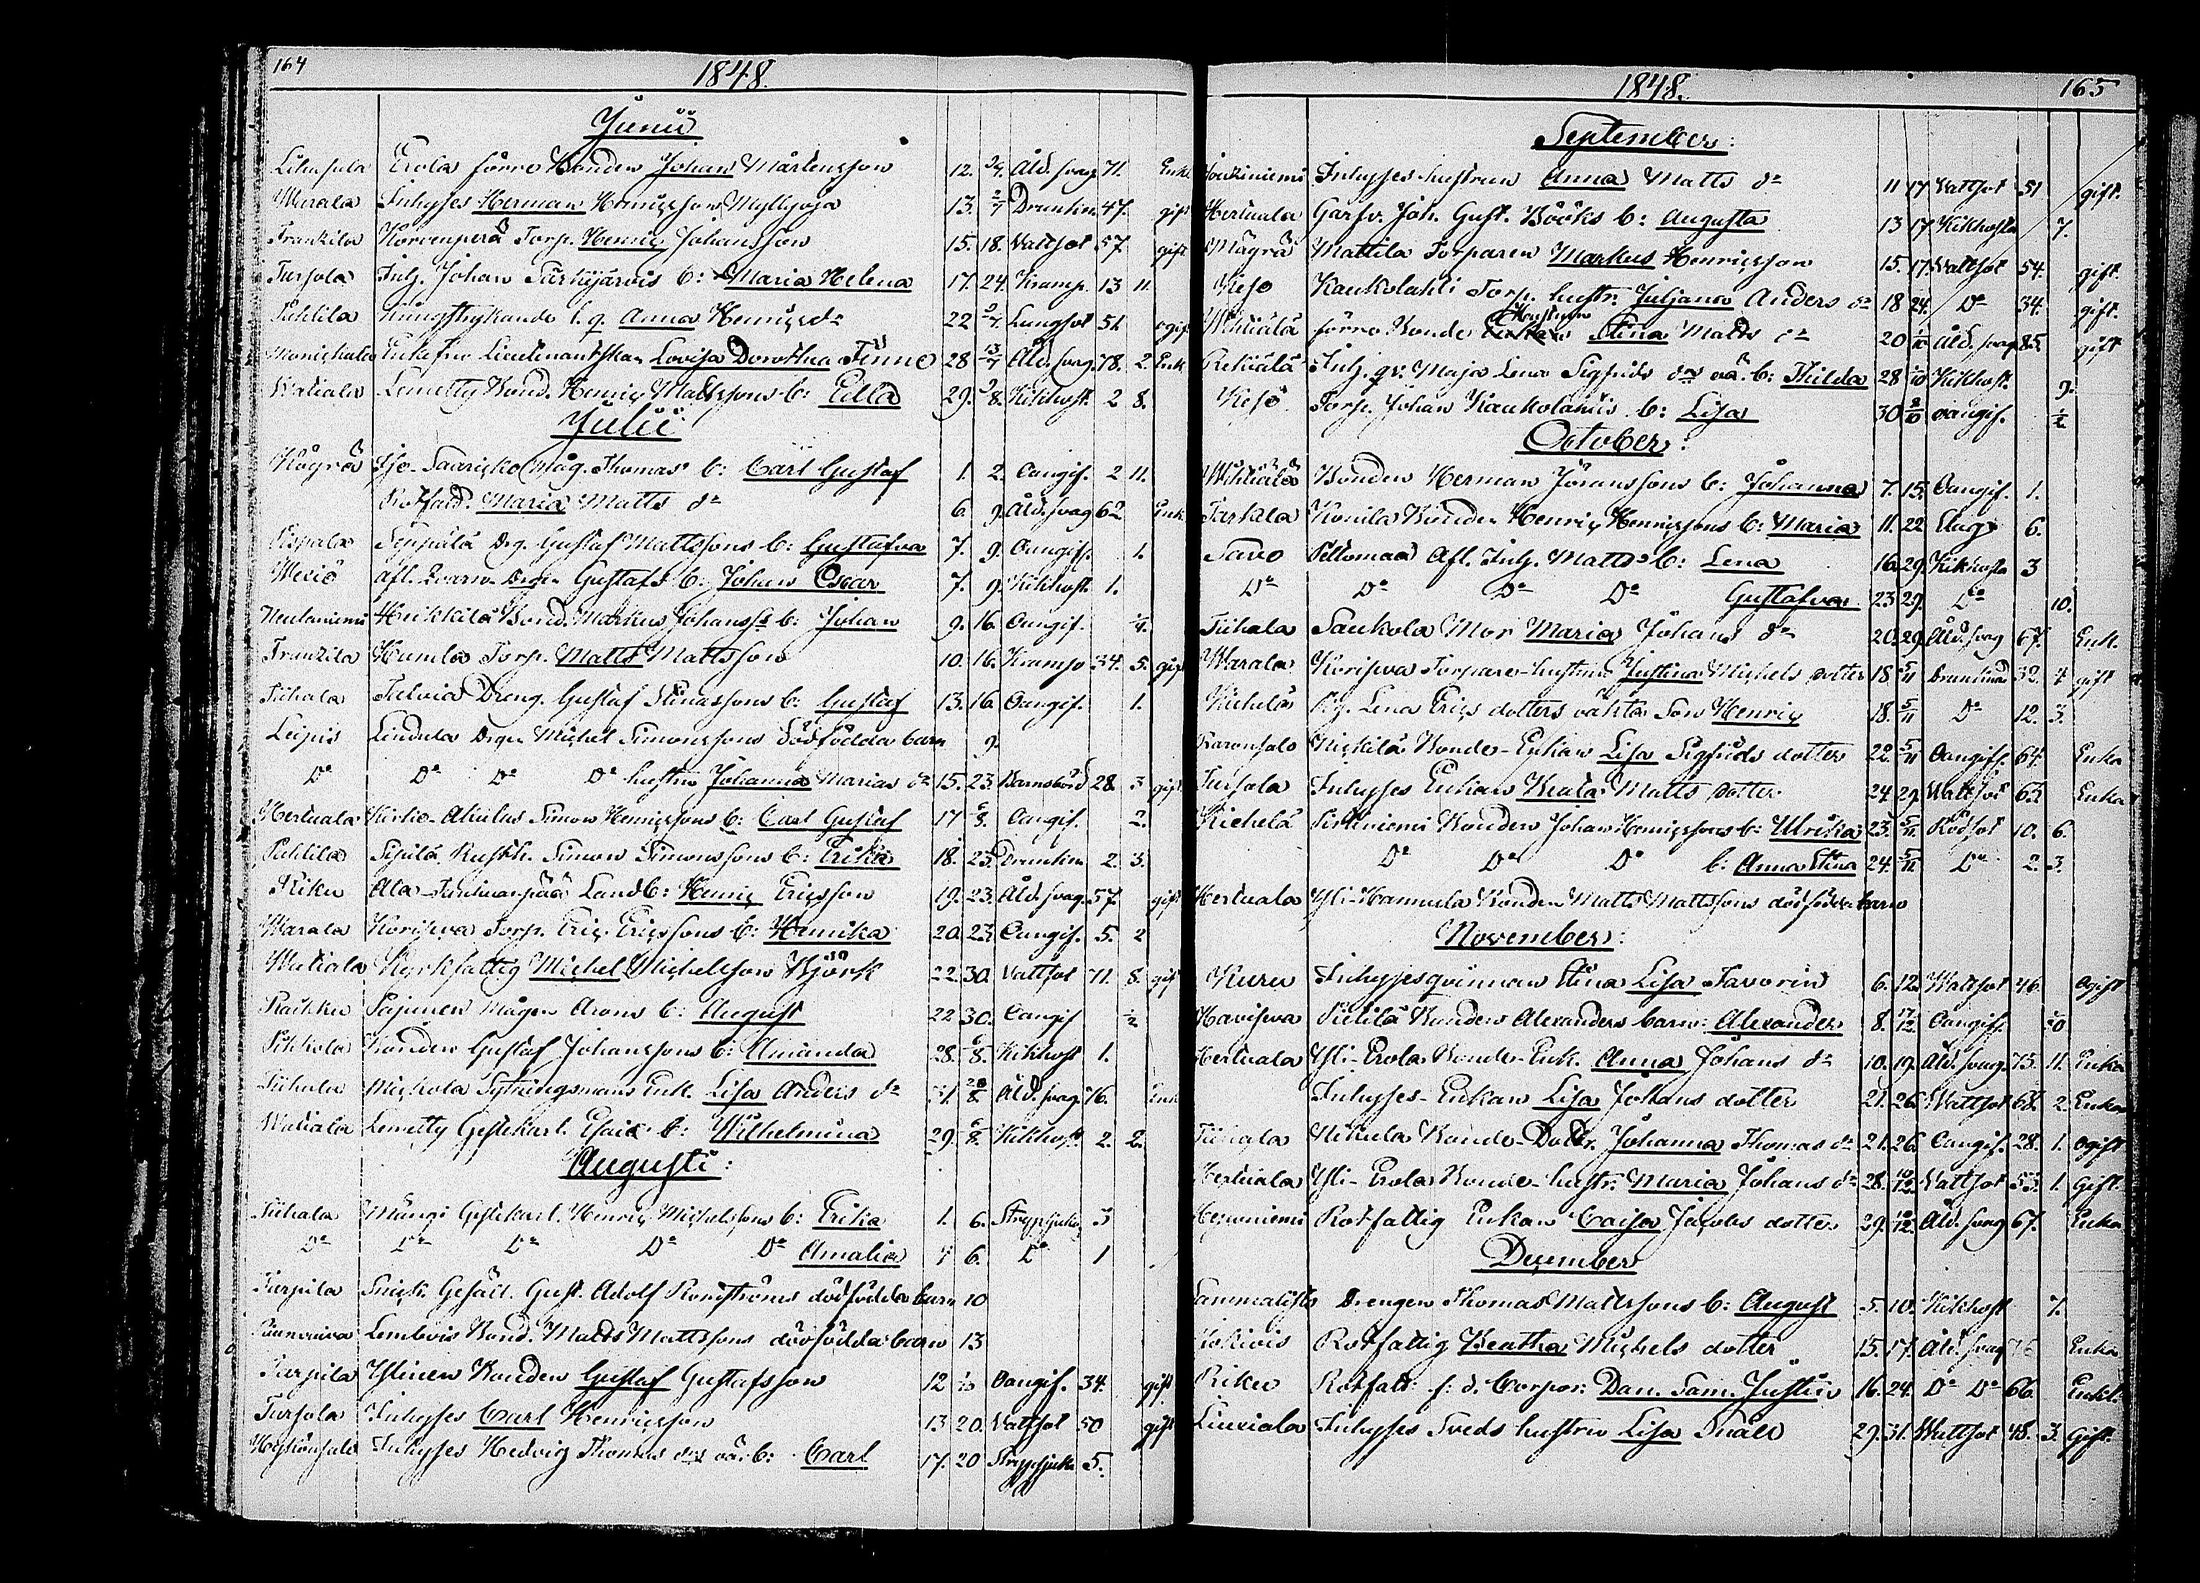 164
1848.
Junii
Erola förre Bonden Johan Mårtensson 12. Åld. svag 71. Enkl.
Warala Inhyses Herman Henricsson Myllyoja 13. Drunkn. 47. gift
Frankila Korvenperä Torp. Henric Johansson 15. 18. Vattsot 57. gift
Tursola Inh. Johan Särkijärvis b: Maria Helena 17. 24. Kramp. 13 11.
Pihtila Anna Henrics dr 22 Lungsot 51. ogift
Enkefru Lieutenantskan Lovisa Dorothea 28 13/7 Åld. svag 78. 2. Enk.
Watiala Lemetty Bond. Henric Mattssons b: 29. Kikhost. 2 8.
Julii
Mågrå Saaricko Måg. Thomas b: Carl Gustaf 1. 2. Oangif. 2 11.
Rotfatt. Maria Matts dr 6. 9. Åld. svag 62 Enk.
Seppälä Drg. Gustaf Mattssons b: Gustafva 7. 9. Oangif. 1.
Wexiö afl. Qvarn Drgn Gustafs b: Johan Oscar 7. 9. Kikhost 1.
Neulaniemi Heikkilä Bond. Markus Johanss b: Johan 9. 16. Oangif.
Frankila Humla Torp. Matts Mattsson 10. 16. Kramp 34. 5. gift
Tiihala Dreng. Gustaf b: Gustaf 13. 16. Oangif. 1.
Leipis Lindula Drgn Michel Simonssons dödfödda barn 9.
Do Do Do Do hustru Johanna Marias dr 15. 23. Barnsbörd 28. 3 gift
Hertuala Simon Henricssons b: Carl Gustaf 17 Oangif. 2.
Pihtila Sipilä Rusth. Simon Simonssons b: Erika 18. 23. Drunkn 2. 3.
Riku Landb: Henric Ericsson 19. 23. Åld. svag 57. gift
Warala Korisева Torp. Eric Ericssons b: Henrika 20. 23. Oangif. 5. 2
Watiala Kyrkfattig Michel Michelsson Björk 22. 30. Vattsot 71. 8. gift
Raikku Pajunen Mågen Arons b: August 22 30. Oangif 1/2
Pikkola Bonden Gustaf Johanssons b: Amanda 28. 6/8. Kikhost 1.
Tiihala Mickola Sytningsmans Enk. Lisa Anders dr 31. Åld. svag 76. Enk
Watiala Lemetty Gestekarl. Esaie b: Wilhelmina 29. 6/8. Kikhost. 2. 2.
Augusti:
Tiihala Mångi Gestekarl. Henric Michelssons b: Erika 1. 6. Strypsjuka 3
Do Do Do Do Do Amalia 4 6. Do 1
Tarpila Gesäll. Gust. Adolf dödfödda barn 10
Lembois Bond. Matts Mattssons dödfödda barn 13
Tarpila Yllinen Bonden Gustaf Gustafsson 12 Oangif. 34. gift
Tursola Inhyses Carl Henricsson 13 20. Vattsot 50 gift
Inhyses Hedvig Thomas drs oä. b: Carl 17. 20 Strypsjuka 5.
1848. 165
September:
Inhyses hustrun Anna Matts dr 11 17 Vattsot 51 gift.
Hertuala Garfv. Joh. Gust. Bööks b: Augusta 13 17 Kikhosta 7.
Mågrå Mattila Torparen Markus Henricsson 15. 17. Wattsot 54. gift.
Kesö Kaukolahti Torp. hustr. Juljana Anders dr 18 24. Do 34. gift.
Hustrun
förre Bonde Stina Matts dr 20 1/10 Åld. svag 85. gift
Rekiälä Inh. qv. Maja Lena Sigfrids drs oä. b: Hilda 28 1/10 Kikhost. 9.
Kesö Torp. Johan Kaukolahtis b: Lisa 30 8/10 oangif. 1/2
October:
Bonden Herman Jöranssons b: Johanna 7. 15. Oangif. 1.
Konila Bonden Henric Henricssons b: Maria 11. 22. Slag 6.
Savo Peltomaa Afl. Inh. Matts b: Lena 16. 29. Kikhosta 3
Do Do Do Do Gustafva 23 29. Do 10.
Tiihala Saukola Mor Maria Johans dr 20. 29. Åld. svag 67. Enk.
Warala Torpare-hustrun Justina Michels dotter 18 5/11 32. 4 gift
Pig. Lena Erics dotters oäkta Son Henric 18. 5/11 Do 12. 3.
Nickilä Bonde-Enkan Lisa Sigfrids dotter 22. 5/11 Oangif. 64. Enka
Tursola Inhyses Enkan Beata Matts dotter 24. 29. Wattsot 63. Enka
Bonden Johan Henricssons b: Ulrika 23. 5/11. Rödsot 10. 6.
Do Do Do b: Anna Stina 24. 5/11 Do 2. 3.
Hertuala Yli-Hannula Bonden Matts Mattssons dödfödda barn
November:
Kuru Inhysesqvinnan Stina Lisa Tavorin 6. 12. Wattsot 46. Ogift
Havisева Pietilä Bonden Alexanders barn: Alexander 8. 17/12. Oangif.
Hertuala Yli-Erola Bonde-Enk. Anna Johans dr 10. 19. Åld. svag 73. 11. Enka
Inhyses-Enkan Lisa Johans dotter 21. 26. Wattsot 68. 2. Enka
Tiihala Nikula Bonde-Dottr. Johanna Thomas dr 21. 26. Oangif. 28. 1. Ogift
Hertuala Yli-Erola Bonde-hustr. Maria Johans dr 28. 10/12. Vattsot 53. 1. Gift.
Rotfattig Enkan Caisa Jacobs dotter 29. 10/12. Åld. svag 67. Enka
December
Sammalisto Drengen Thomas Mattssons b: August 5. 10. Kikhost 7.
Rotfattig Beatha Michels dotter 15. 17. Åld. svag Enka
Riku Rotfatt. f. d. Corpor. Dan. Sam. Justin 16. 24. Do Do 66. Enkl.
Liuxiala Inhyses Sveds hustru Lisa Snäll 29. 31. Wattsot 48. 3. Gift.